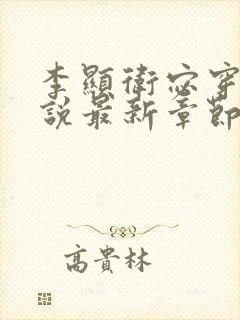 李顯衛宓穿
說最新章節
高貴林